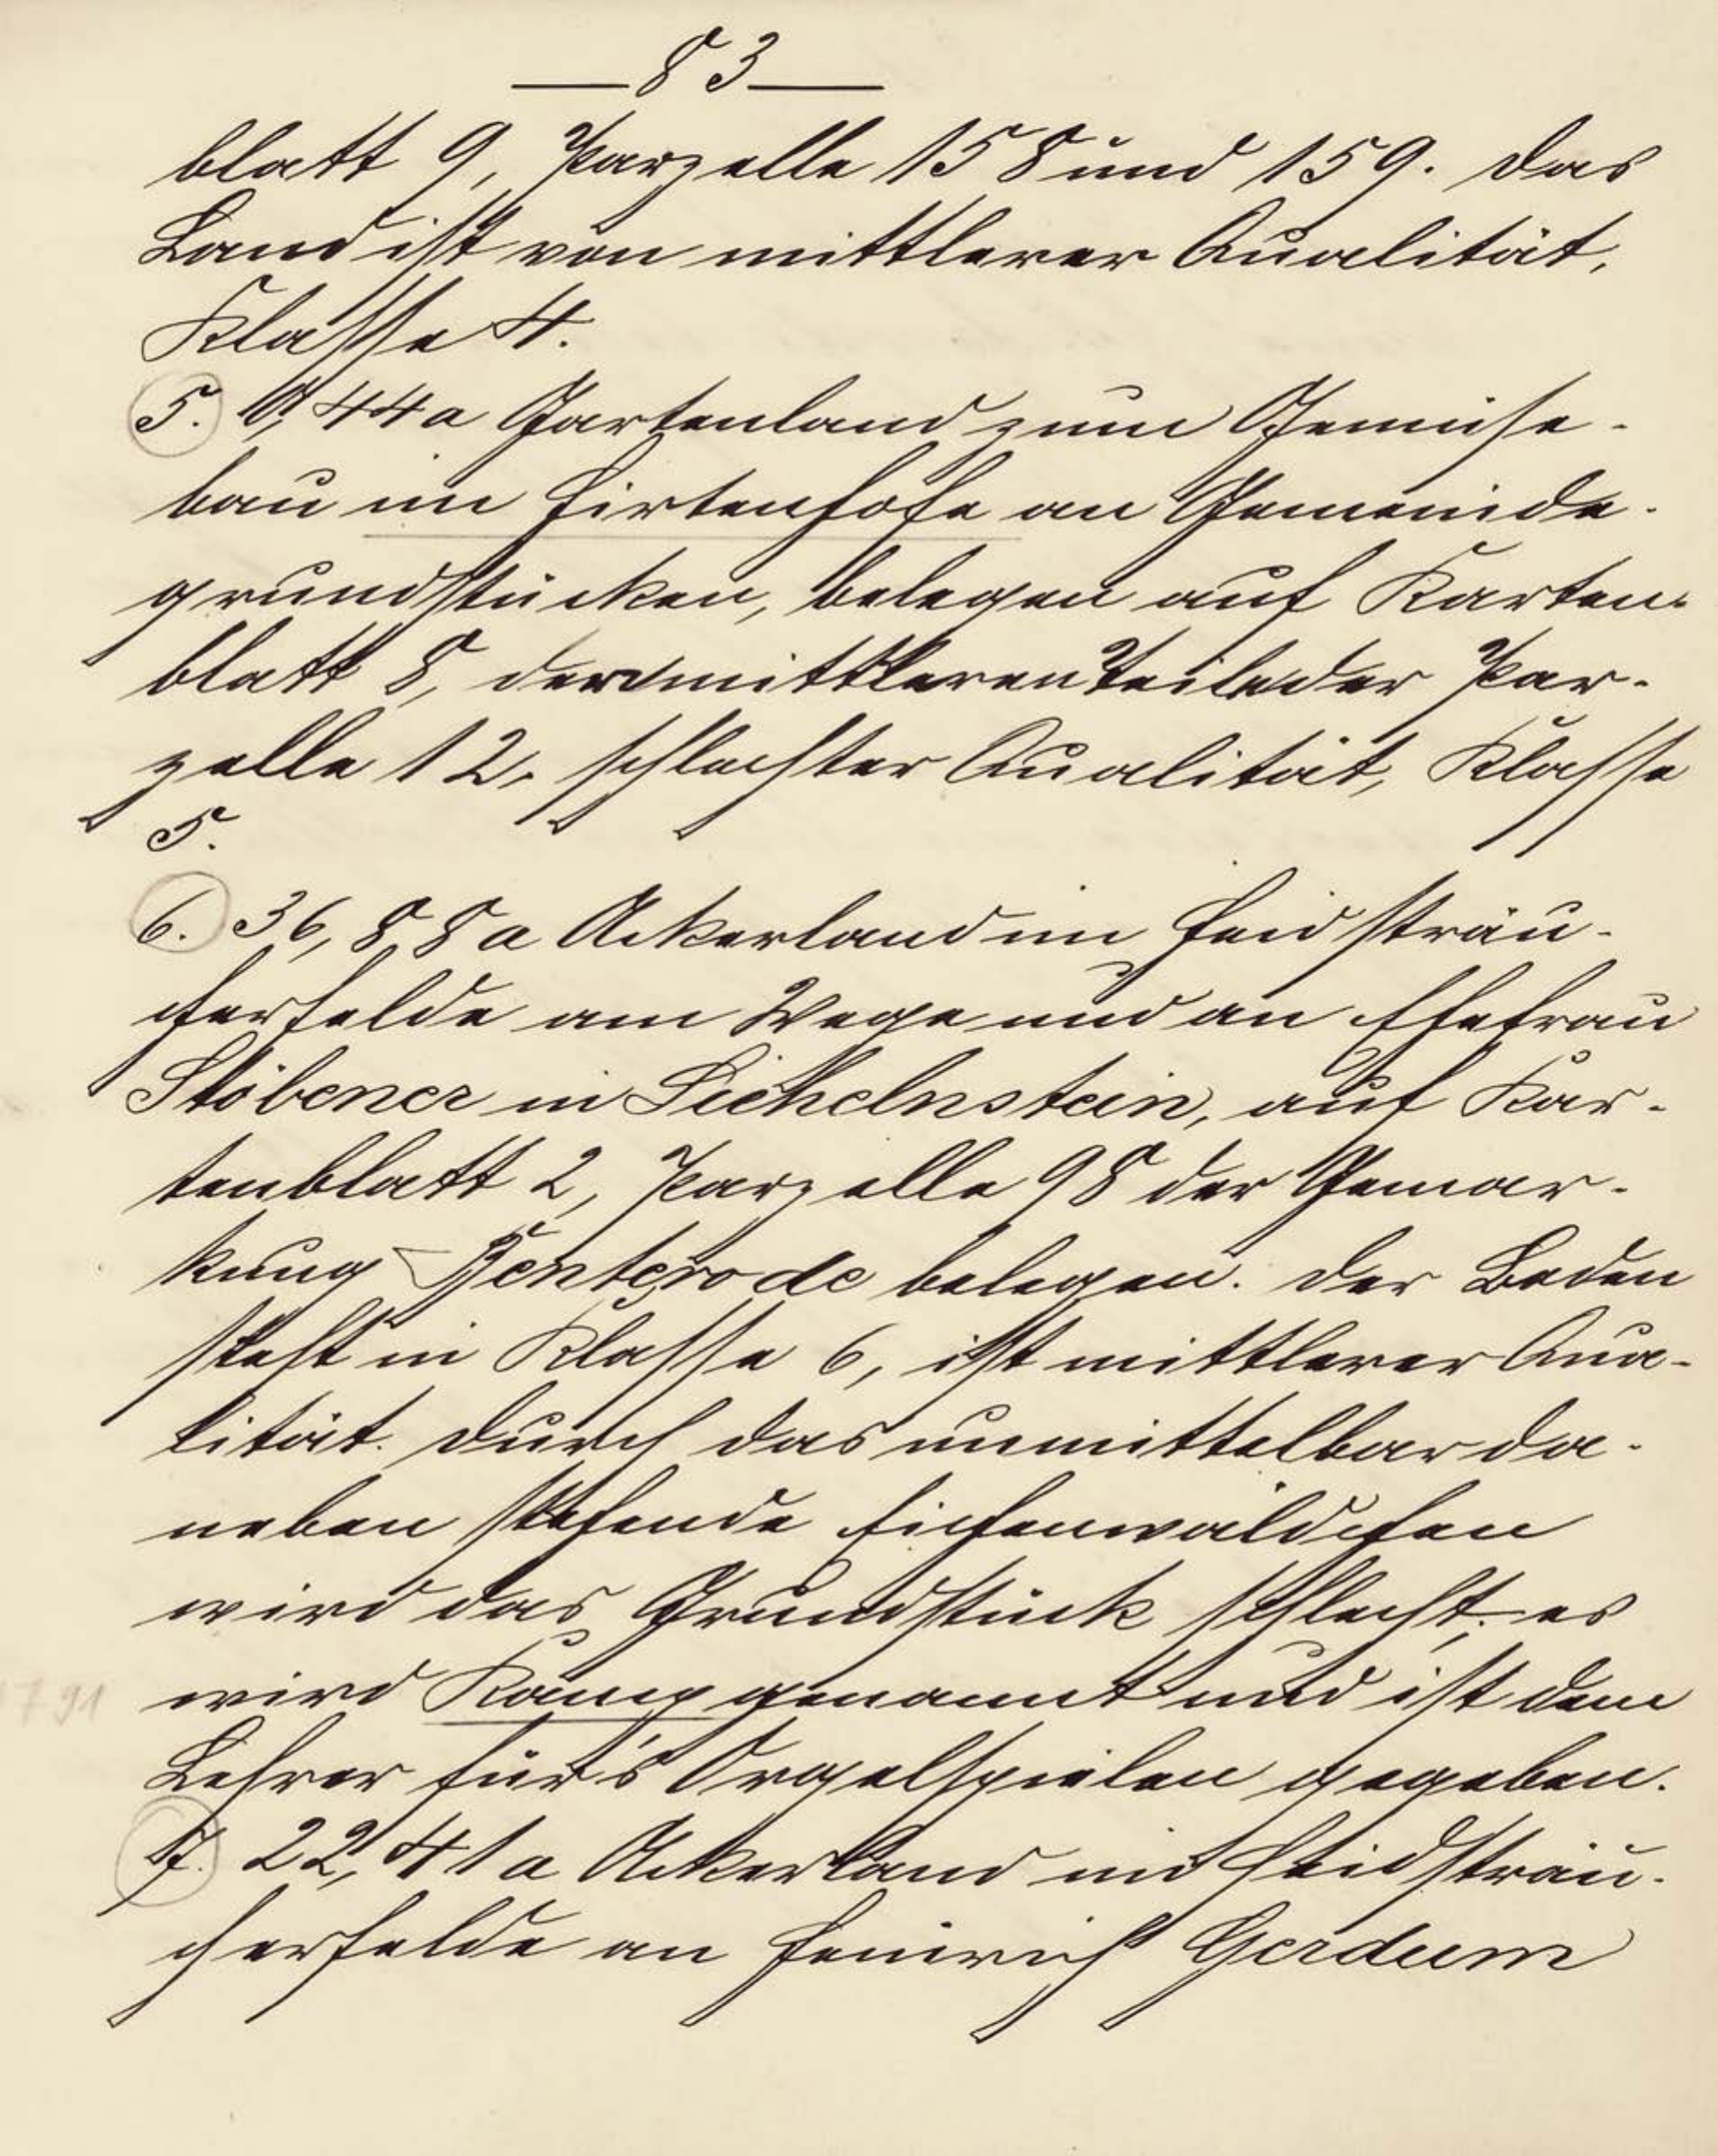 — 83 —
blatt 9, Parzelle 158 und 159. Das
Land ist von mittlerer Qualität,
Klasse 4.
5. 0,44 a Gartenland zum Gemüse-
bau im Hirtenhofe an Gemeinde-
grundstücken, belegen auf Karten-
blatt 8, der mittleren Teile der Par-
zelle 12, schlechter Qualität, Klasse
5.
6. 36,88 a Ackerland im Heidsträu-
cherfelde am Wege und an Ehefrau
Stöbener in Sichelnstein, auf Kar-
tenblatt 2, Parzelle 98 der Gemar-
kung Benterode belegen. Der Boden
steht in Klasse 6, ist mittlerer Qua-
lität. Durch das unmittelbar da-
neben stehende Eichenwäldchen
wird das Grundstück schlecht; es
wird Kamp genannt und ist dem
Lehrer für's Orgelspielen gegeben.
7. 22,41 a Ackerland im Heidsträu-
cherfelde an Heinrich Gerdum